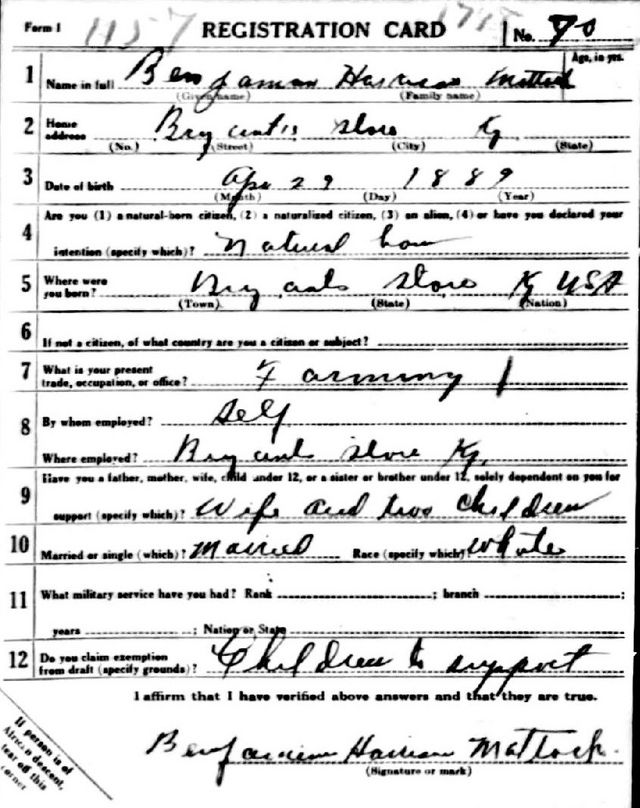 Form 1 1157 REGISTRATION CARD No. 70
Age, in yrs.
1 Name in full Benjaman Harrison Mattock
(Given name) (Family name)
2 Home address Bryants Store Ky
(No.) (Street) (City) (State)
3 Date of birth Apr 29 1889
(Month) (Day) (Year)
4 Are you (1) a natural-born citizen, (2) a naturalized citizen, (3) an alien, (4) or have you declared your
intention (specify which)? Natural born
5 Where were you born? Bryants Store Ky USA
(Town) (State) (Nation)
6 If not a citizen, of what country are you a citizen or subject?
7 What is your present trade, occupation, or office? Farming
8 By whom employed? Self
Where employed? Bryants Store Ky.
9 Have you a father, mother, wife, child under 12, or a sister or brother under 12, solely dependent on you for
support (specify which)? Wife and two children
10 Married or single (which)? Married Race (specify which) White
11 What military service have you had? Rank ; branch ;
years ; Nation or State
12 Do you claim exemption from draft (specify grounds)? Children to support
I affirm that I have verified above answers and that they are true.
Benjamin Harrison Mattock
(Signature or mark)
If person is of
African descent,
tear off this
corner